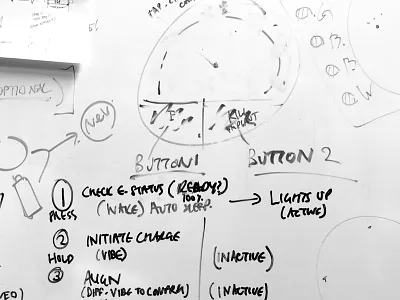 5%
OPTIONAL
NEW
BUTTON 1
BUTTON 2
1 CHECK E-STATUS (READY?)
100%
PRESS
(WAKE) AUTO SLEEP
LIGHTS UP
(ACTIVE)
2 INITIATE CHARGE
HOLD
(VIBE)
(INACTIVE)
3 ALIGN
(DIFF-VIBE TO CONFIRM)
(INACTIVE)